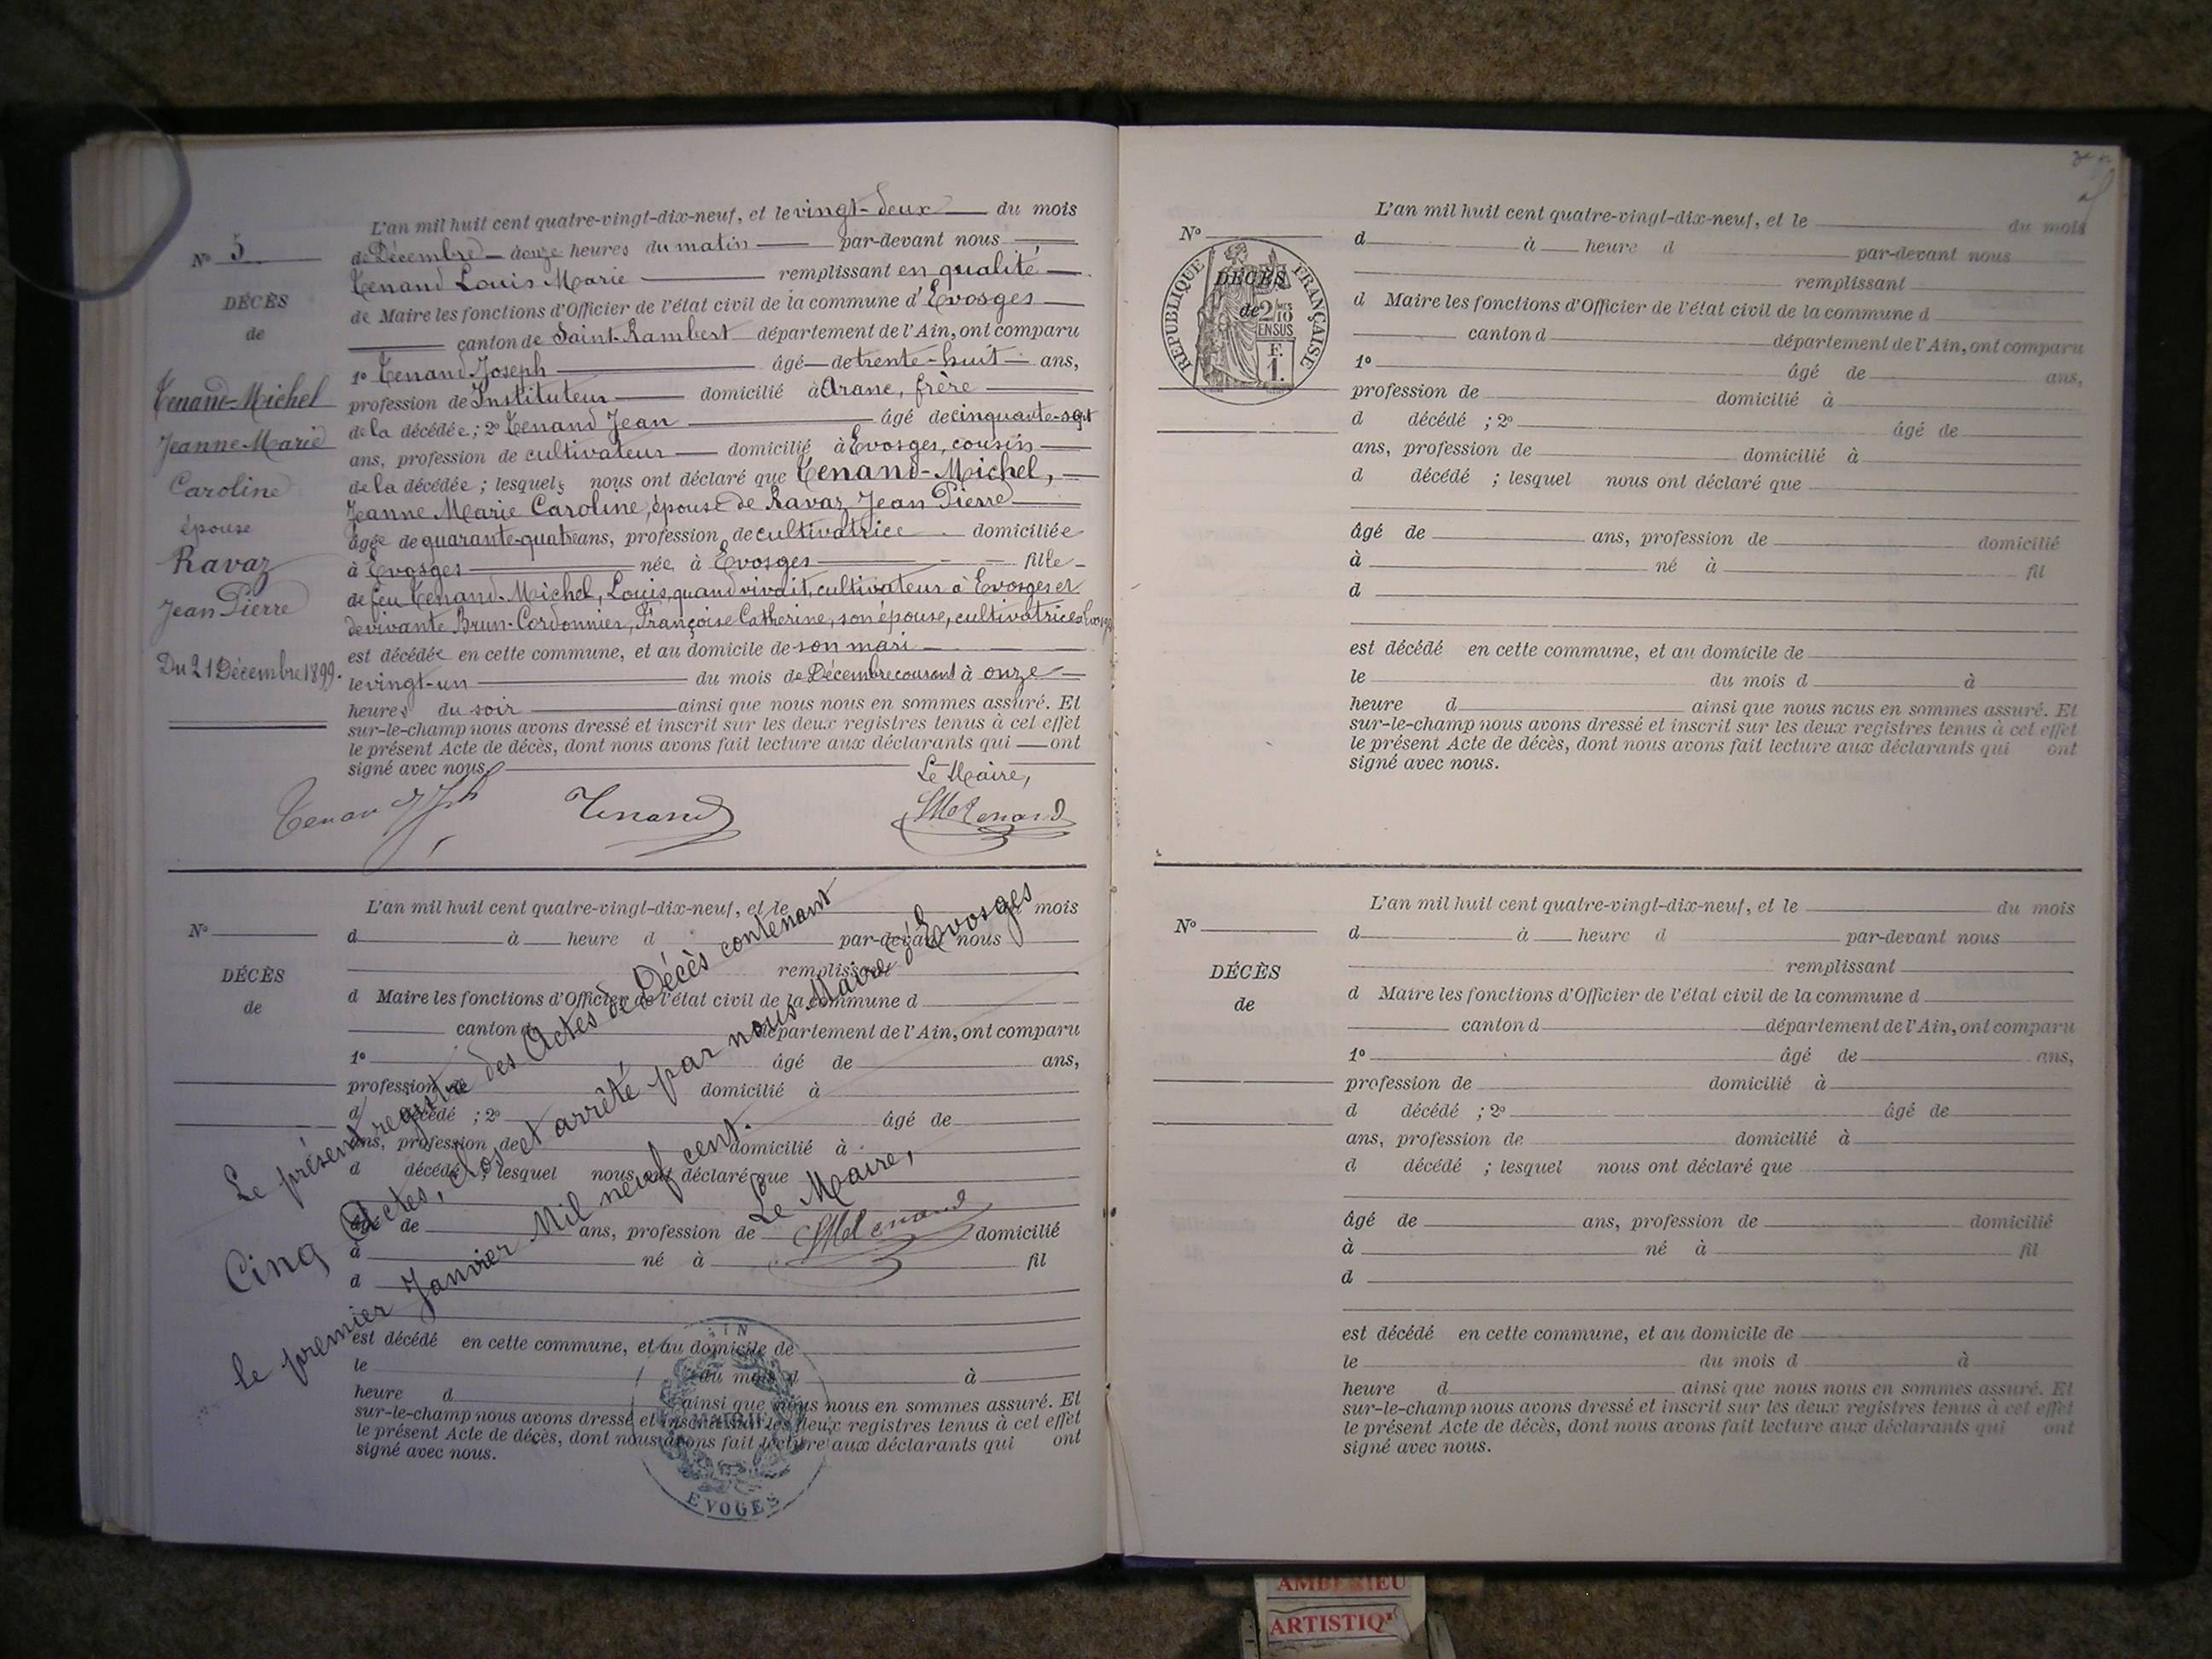 N° 5
DÉCÈS
de
Tenand-Michel
Jeanne Marie
Caroline
épouse
Ravaz
Jean Pierre
Du 21 Décembre 1899.
L'an mil huit cent quatre-vingt-dix-neuf, et le vingt-deux du mois
de Décembre à onze heures du matin par-devant nous
Tenand Louis Marie remplissant en qualité
de Maire les fonctions d'Officier de l'état civil de la commune d'Evosges
canton de Saint-Rambert département de l'Ain, ont comparu
1° Tenand Joseph âgé de trente-huit ans,
profession de Instituteur domicilié à Aranc, frère
de la décédée ; 2° Tenand Jean âgé de cinquante-sept
ans, profession de cultivateur domicilié à Evosges, cousin
de la décédée ; lesquels nous ont déclaré que Tenand-Michel,
Jeanne Marie Caroline, épouse de Ravaz Jean Pierre
âgée de quarante-quatre ans, profession de cultivatrice domiciliée
à Evosges née à Evosges fille
de feu Tenand-Michel, Louis, quand vivait, cultivateur à Evosges et
de vivante Brun-Cordonnier, Françoise Catherine, son épouse, cultivatrice à Evosges
est décédée en cette commune, et au domicile de son mari
le vingt-un du mois de Décembre courant à onze
heures du soir ainsi que nous nous en sommes assuré. Et
sur-le-champ nous avons dressé et inscrit sur les deux registres tenus à cet effet
le présent Acte de décès, dont nous avons fait lecture aux déclarants qui ont
signé avec nous.
Le Maire,
Tenand Jph
Tenand
LMTenand
N°
DÉCÈS
de
L'an mil huit cent quatre-vingt-dix-neuf, et le mois
d à heure d par-devant nous
remplissant
d Maire les fonctions d'Officier de l'état civil de la commune d
canton d département de l'Ain, ont comparu
1° âgé de ans,
profession de domicilié à
d décédé ; 2° âgé de
ans, profession de domicilié à
d décédé ; lesquel nous ont déclaré que
âgé de ans, profession de domicilié
à né à fil
d
est décédé en cette commune, et au domicile de
le du mois d à
heure d ainsi que nous nous en sommes assuré. Et
sur-le-champ nous avons dressé et inscrit sur les deux registres tenus à cet effet
le présent Acte de décès, dont nous avons fait lecture aux déclarants qui ont
signé avec nous.
Le présent registre des Actes de Décès contenant
Cinq Actes, clos et arrêté par nous Maire d'Evosges
le premier Janvier Mil neuf cent.
Le Maire,
LMTenand
AIN
MAIRIE
EVOGES
N°
RÉPUBLIQUE FRANÇAISE
DÉCÈS
de
2/10 MES
EN SUS
F.
1.
L'an mil huit cent quatre-vingt-dix-neuf, et le du mois
d à heure d par-devant nous
remplissant
d Maire les fonctions d'Officier de l'état civil de la commune d
canton d département de l'Ain, ont comparu
1° âgé de ans,
profession de domicilié à
d décédé ; 2° âgé de
ans, profession de domicilié à
d décédé ; lesquel nous ont déclaré que
âgé de ans, profession de domicilié
à né à fil
d
est décédé en cette commune, et au domicile de
le du mois d à
heure d ainsi que nous nous en sommes assuré. Et
sur-le-champ nous avons dressé et inscrit sur les deux registres tenus à cet effet
le présent Acte de décès, dont nous avons fait lecture aux déclarants qui ont
signé avec nous.
N°
DÉCÈS
de
L'an mil huit cent quatre-vingt-dix-neuf, et le du mois
d à heure d par-devant nous
remplissant
d Maire les fonctions d'Officier de l'état civil de la commune d
canton d département de l'Ain, ont comparu
1° âgé de ans,
profession de domicilié à
d décédé ; 2° âgé de
ans, profession de domicilié à
d décédé ; lesquel nous ont déclaré que
âgé de ans, profession de domicilié
à né à fil
d
est décédé en cette commune, et au domicile de
le du mois d à
heure d ainsi que nous nous en sommes assuré. Et
sur-le-champ nous avons dressé et inscrit sur les deux registres tenus à cet effet
le présent Acte de décès, dont nous avons fait lecture aux déclarants qui ont
signé avec nous.
AMBERIEU
ARTISTIQ